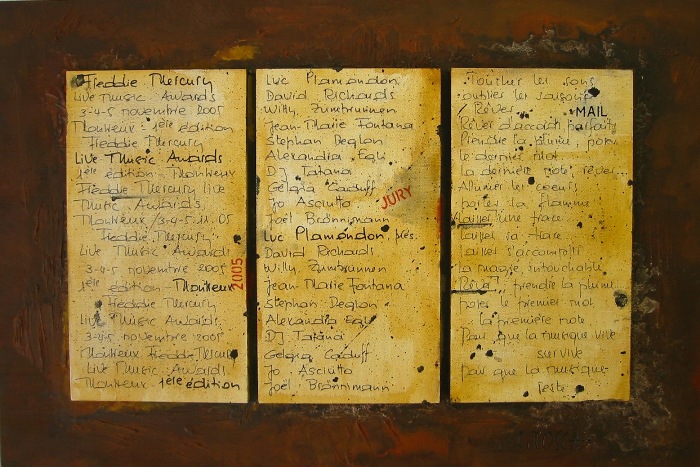 Freddie Mercury
Live Music Awards
3-4-5 novembre 2005
Montreux. 1ère édition
Freddie Mercury
Live Music Awards
1ère édition - Montreux
Freddie Mercury live
Music Awards
Montreux/3-4-5.11.05
Freddie Mercury
Live Music Awards
3-4-5 novembre 2005
1ère édition - Montreux
Freddie Mercury
Live Music Awards
3-4-5 novembre 2005
Montreux Freddie Mercury
Live Music Awards.
Montreux 1ère édition
2005
Luc Plamondon
David Richards
Willy Zumbrunnen
Jean Marie Fontana
Stephan Deglon
Alexandra Egli
DJ Tatana
Gelgia Caduff
Jo Asciutto
Joël Brönnimann
Luc Plamondon, prés.
David Richards
Willy Zumbrunnen
Jean Marie Fontana
Stephan Deglon
Alexandra Egli
DJ Tatana
Gelgia Caduff
Jo Asciutto
Joël Brönnimann
JURY
Toucher les sons
oublier les saisons
Rêver
MAIL
Rêver d'accords parfaits
Prendre la plume, poser
le dernier mot
la dernière note, rêver...
Allumer les coeurs
porter la flamme
laisser une trace
laisser sa trace
laisser s'accomplir
la magie, intouchable
Rêver, prendre la plume
poser le premier mot
la première note
Pour que la musique vive
survive
pour que la musique
reste